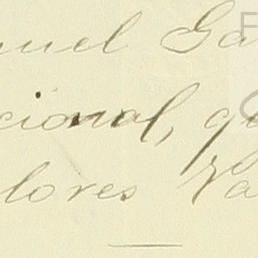 nuel Ga
cional, qu
lores Va